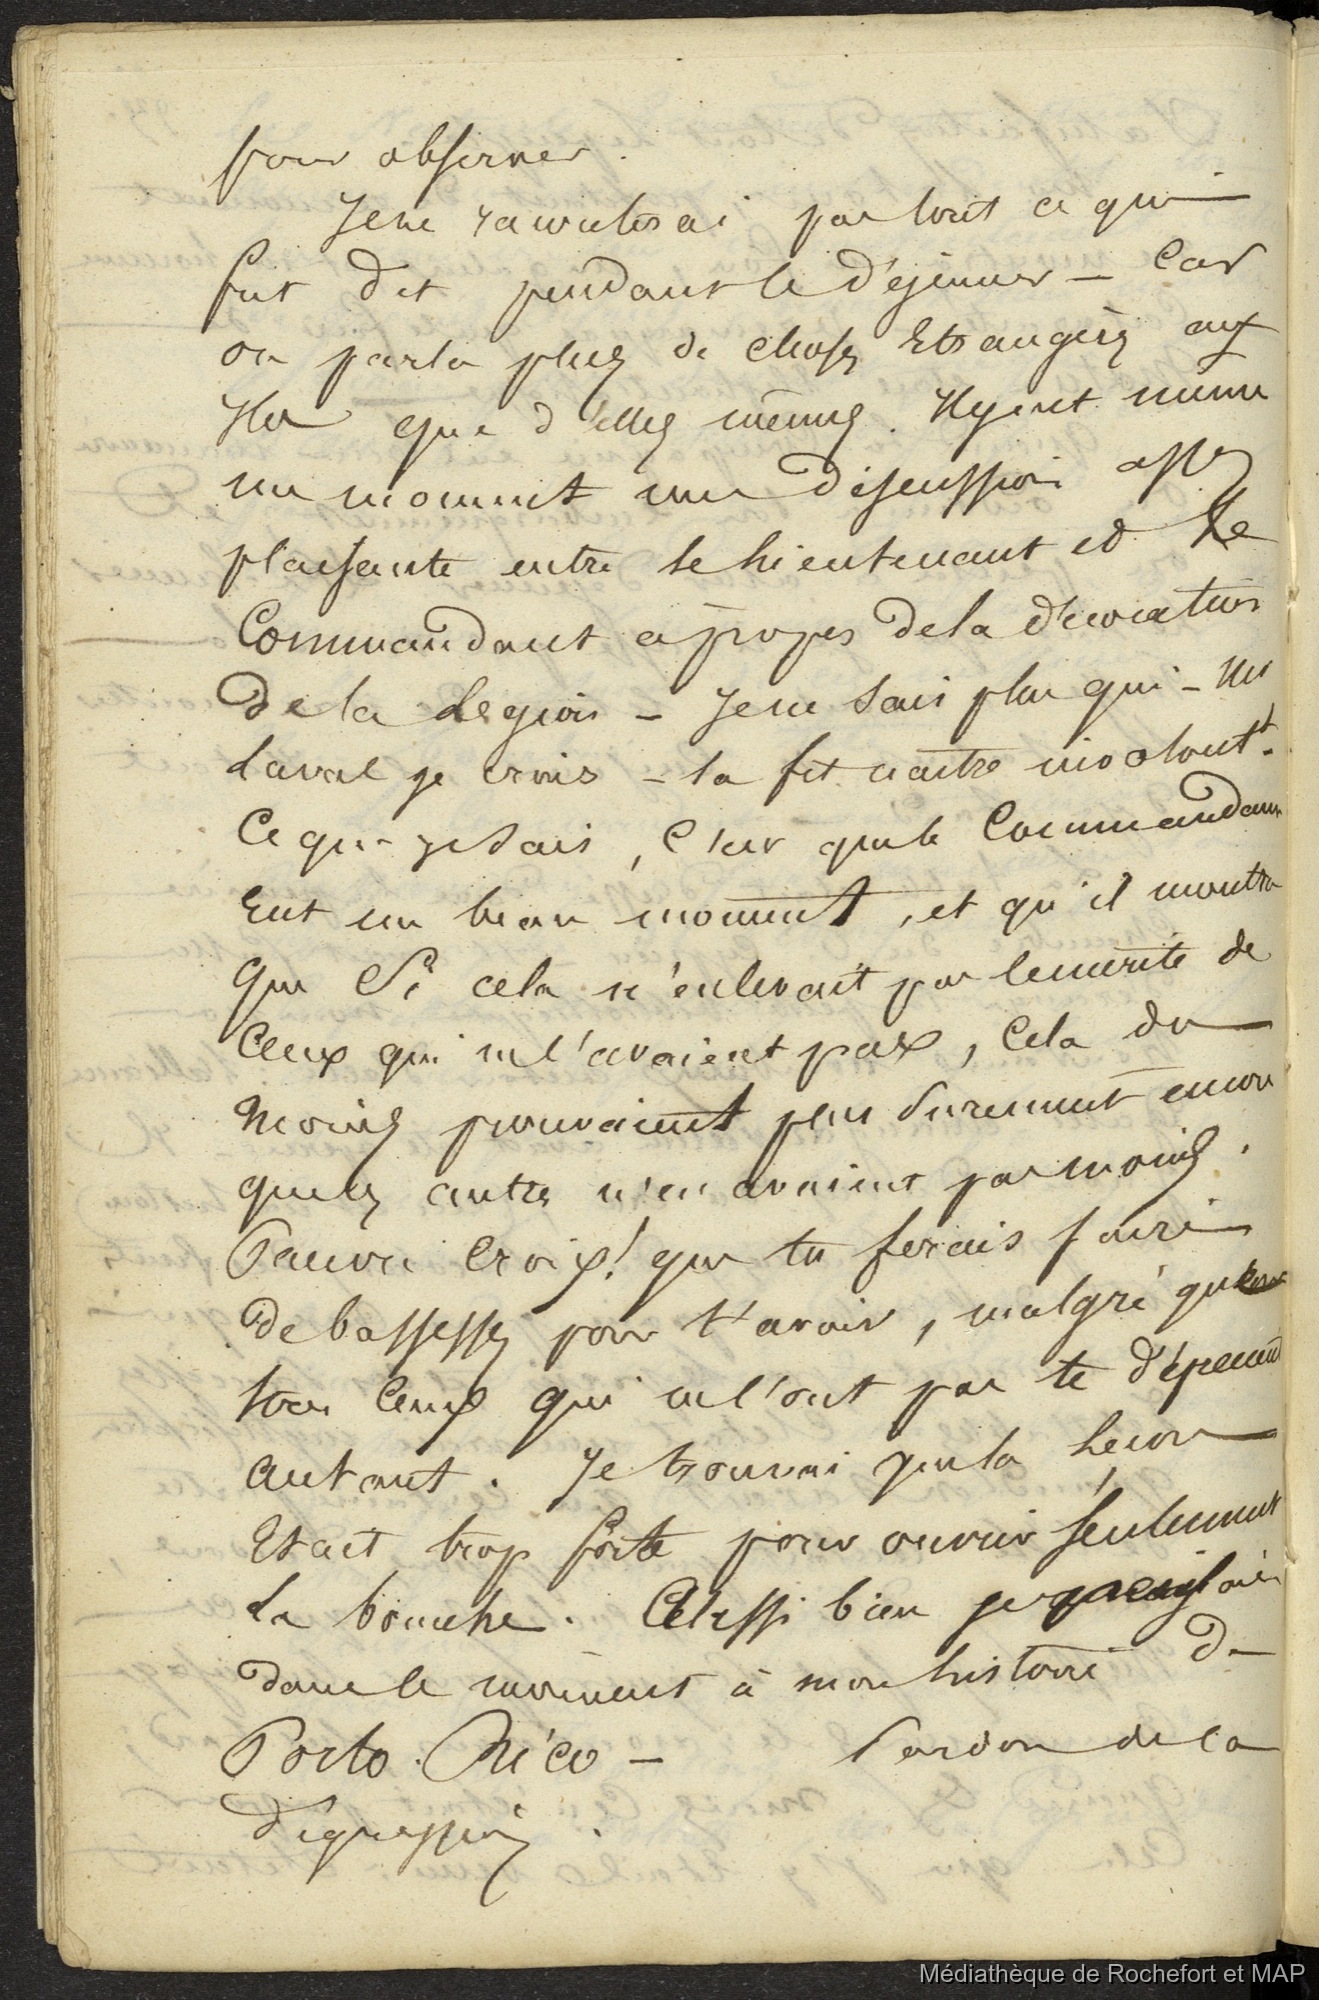 pour observer.
Je ne raconterai pas tout ce qui
fut dit pendant le déjeuner – Car
on parla plus de choses Etrangères aux
Iles que d'elles mêmes. Il y eut même
un moment une discussion assez
plaisante entre le Lieutenant et le
Commandant à propos de la décoration
de la Légion – Je ne sais plus qui – Mr
Laval je crois – la fit naître involontt.
Ce que je sais, C'est que le Commandant
Eut un beau moment, et qu'il montra
que Si cela n'enlevait pas le mérite de
Ceux qui ne l'avaient pas, Cela du
moins prouvaient plus surement encore
que les autres n'en avaient pas moins.
Pauvre Croix! que tu ferais faire
de bassesses pour t'avoir, malgré que
tous Ceux qui ne l'ont pas te déprecient
autant. Je trouvai que la Lecon
Etait trop forte pour ouvrir seulement
la bouche. Aussi bien je
dans le moment à mon histoire de
Porto. Rico – Pardon de la
digression.
Médiathèque de Rochefort et MAP